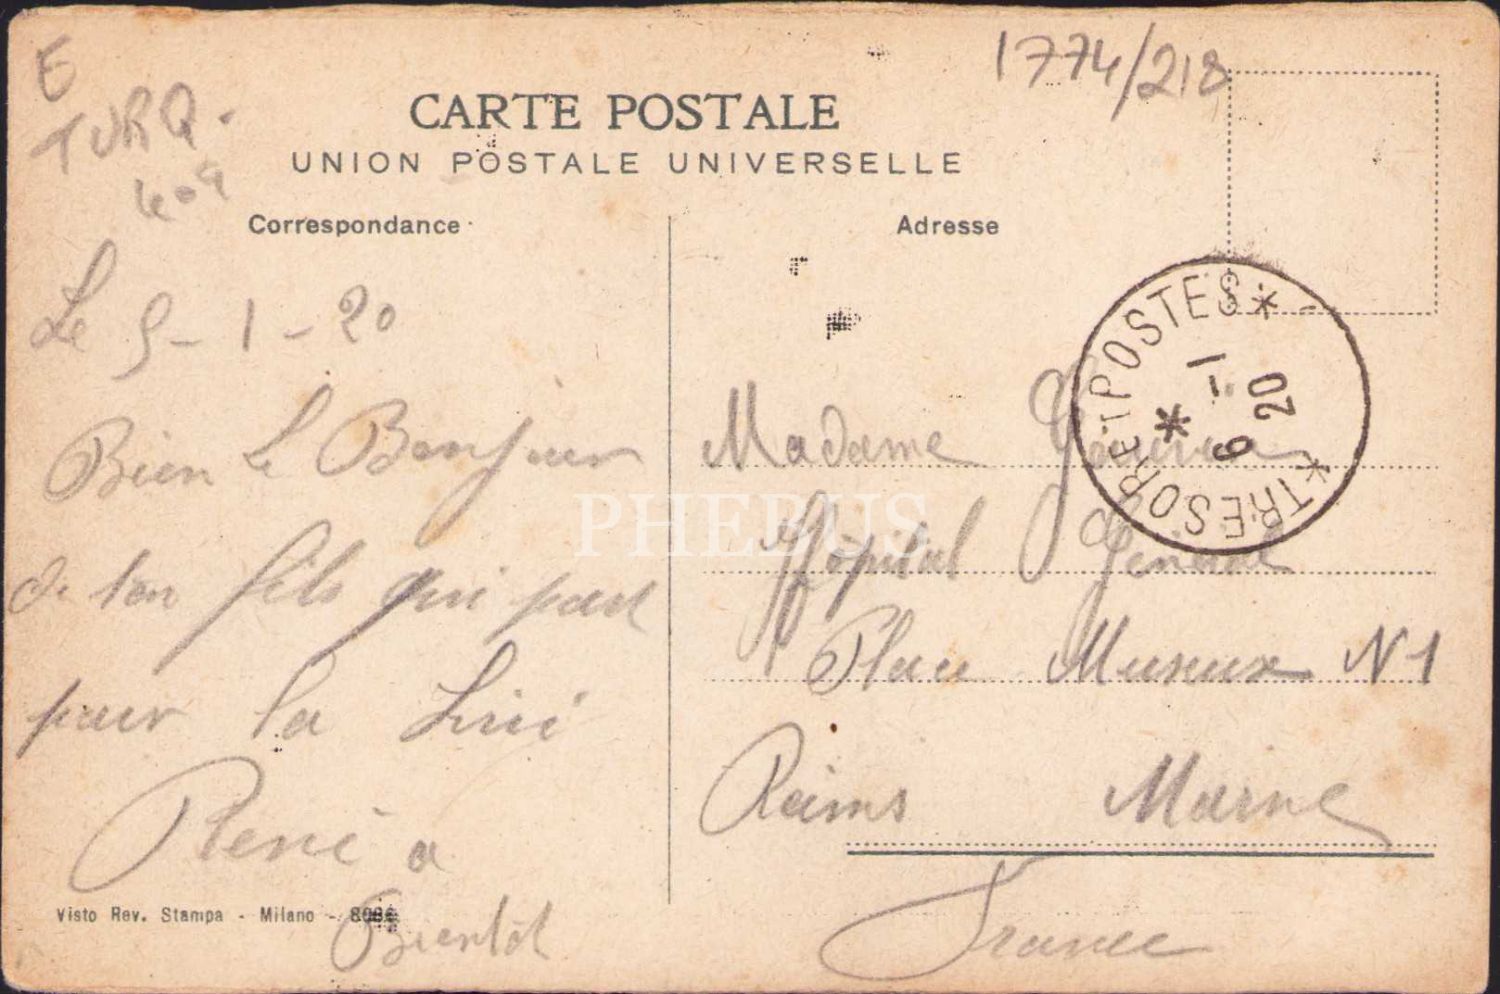 E
TURQ.
409
1774/218
CARTE POSTALE
UNION POSTALE UNIVERSELLE
Correspondance
Adresse
Le 5-1-20
Bien le Bonjour
de ton fils qui part
pour la
René a
Bientôt
Visto Rev. Stampa - Milano -
TRESOR ET POSTES
6 1 20
Madame
Hôpital Général
Place Museux N1
Reims Marne
France
PHEBUS